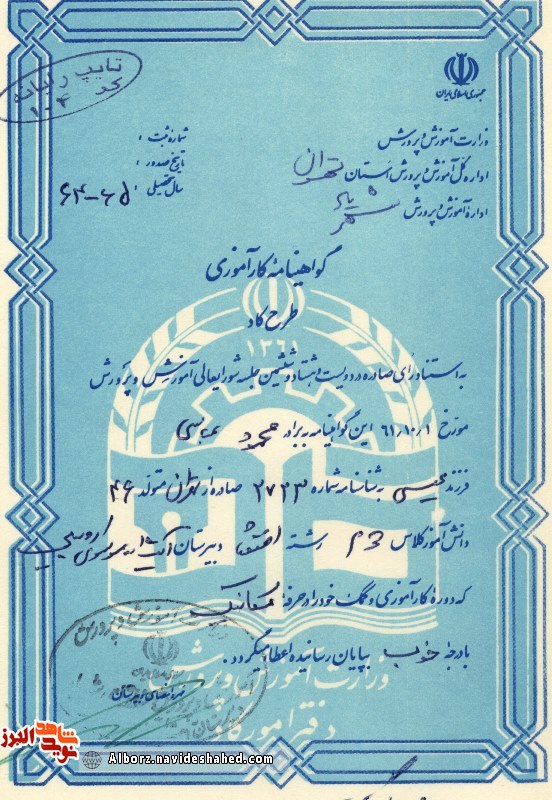 جمهوری اسلامی ایران
تایپ رایانه
کد ۱۰۴
وزارت آموزش و پرورش
اداره کل آموزش و پرورش استان تهران
اداره آموزش و پرورش
شماره ثبت :
تاریخ صدور :
سال تحصیلی : ۶۴-۶۵
گواهینامه کارآموزی
طرح کاد
۱۳۶۱
به استناد رای صادره در دویست و هشتاد و ششمین جلسه شورایعالی آموزش و پرورش
مورخ ۶۱/۱۰/۱ این گواهینامه به برادر محمود عباسی
فرزند عیسی به شناسنامه شماره ۲۷۳۳ صادره از تهران متولد ۴۶
دانش آموز کلاس دوم رشته اقتصاد دبیرستان آیت ا...
که دوره کارآموزی و کمک خود را در حرفه مکانیک
با درجه خوب بپایان رسانیده اعطا میگردد.
مهر و امضای دبیرستان
وزارت آموزش و پرورش
دفتر امور کاد
شاهد
نوید
البرز
Alborz.navideshahed.com